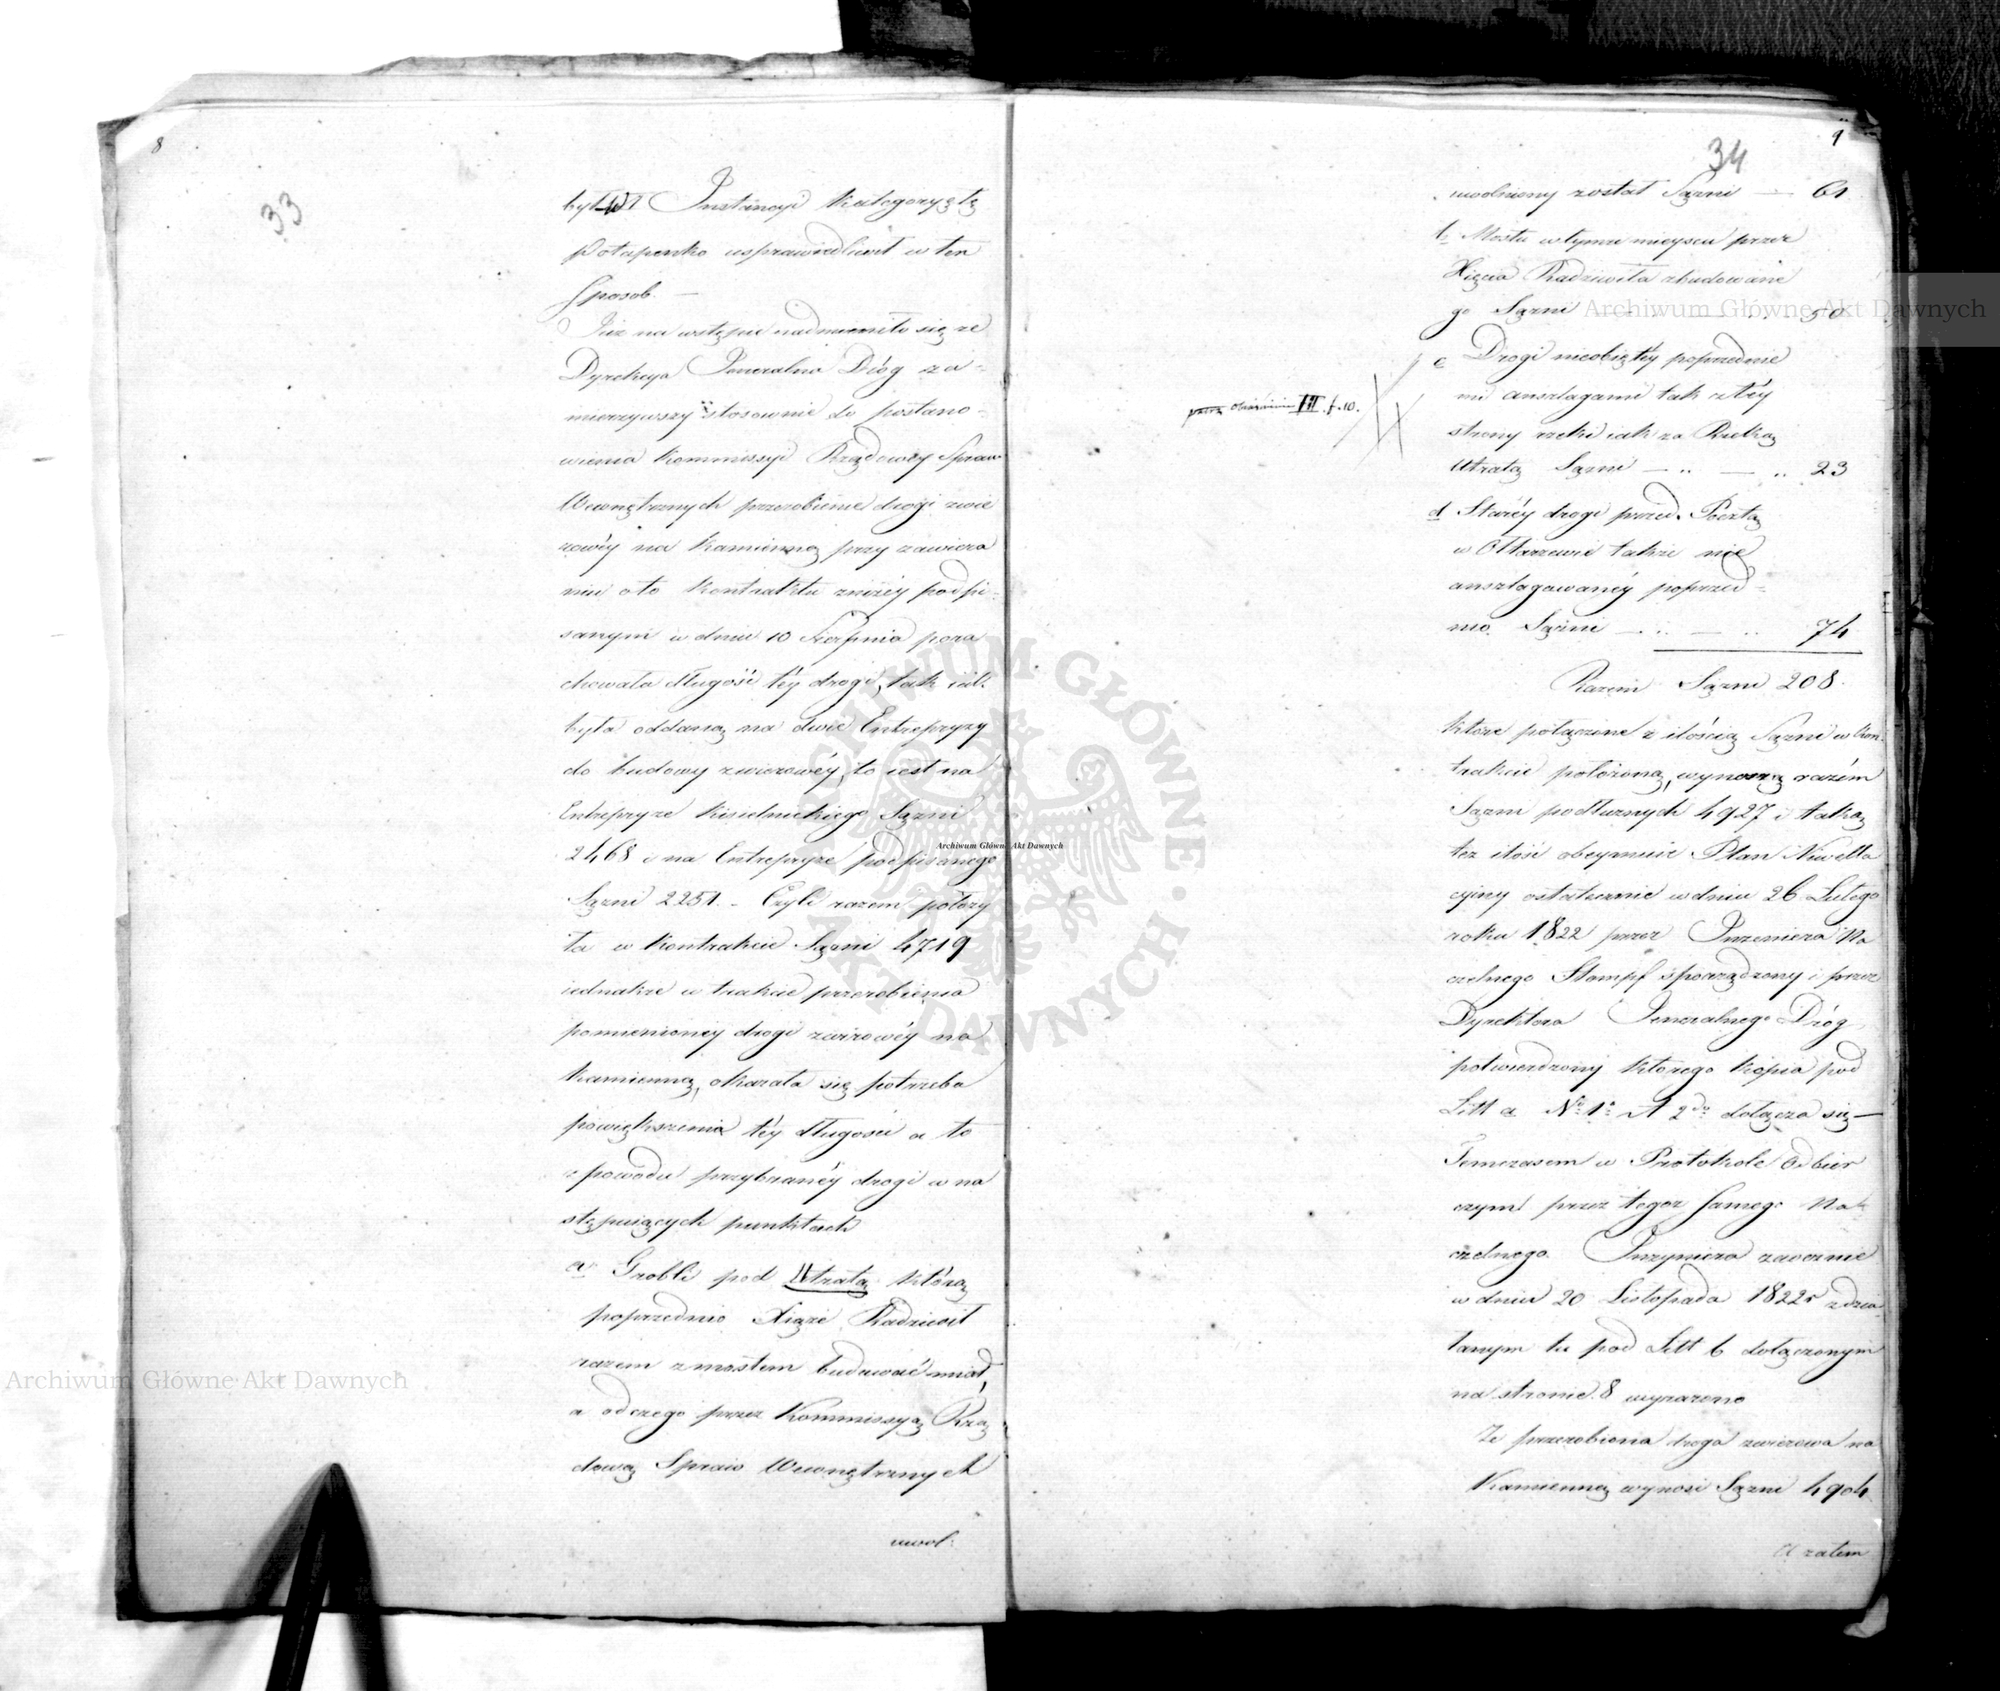 8
33
był w I Instancyi kategoryętę
Potapenko usprawiedliwił w ten
sposob. —
Już na wstępie nadmieniło się że
Dyrekcya Jeneralna Dróg za-
mierzywszy stosownie do postano-
wienia Kommissyi Rządowey Spraw
Wewnętrznych przerobienie drogi żwi
rowéy na kamienną przy zawiera
niu o to kontraktu zniżéy podpi-
sanym w dniu 10 Sierpnia pora
chowała długość téy drogi, tak iak
była oddaną na dwie Entrepryzy
do budowy zwirowéy, to iest na
Entrepryze Kisielnickiego Sązni
2468 i na Entrepryze podpisanego
Sązni 2251. – Czyli razem położy
ła w kontrakcie Sązni 4719
iednakże w trakcie przerobienia
pomienioney drogi zwirowéy na
kamienną, okazała się potrzeba
powiększenia téy długości a to
z powodu przybranéy drogi w na
stępuiących punktach
a Grobli pod Utratą którą
poprzednio Xiąże Radziwił
razem z mostem budować miał,
a od czego przez Kommissyą Rzą
dową Spraw Wewnętrznych
uwol:
9
34
uwolniony został Sązni — 61
b Mostu w tymże mieyscu przez
Xięcia Radziwiła zbudowane
go Sązni 50
c Drogi nieobiętéy poprzednie
mi anszlagami tak z téy
strony rzeki iak za Rzeką
Utratą Sązni — .. — .. 23
III f. 10.
d Staréy drogi przed Pocztą
w Ołtarzewie także nie
anszlagowanéy poprzed-
nio. Sązni — .. — .. 74
Razem Sązni 208.
które połączone z ilością Sązni w kon-
trakcie położoną, wynoszą razém
Sązni podłużnych 4927 i taką
też ilość obeymuie Plan Niwella
cyiny ostatecznie w dniu 26 Lutego
roku 1822 przez Inżeniera Na
czelnego Stompf sporządzony i przez
Dyrektora Jeneralnego Dróg
potwierdzony którego kopia pod
Litt a Nº 1º A 2do dołącza się —
Tymczasem w Protokole Odbior
czym przez tegoż samego Na-
czelnego Inżyniera zaocznie
w dniu 20 Listopada 1822r zdzia
łanym tu pod Litt b dołączonym
na stronie 8 wyrażono
Ze przerobiona droga zwirowa na
Kamienną wynosi Sązni 4904
A zatem
Archiwum Główne Akt Dawnych
Archiwum Główne Akt Dawnych
Archiwum Główne Akt Dawnych
ARCHIWUM GŁÓWNE AKT DAWNYCH